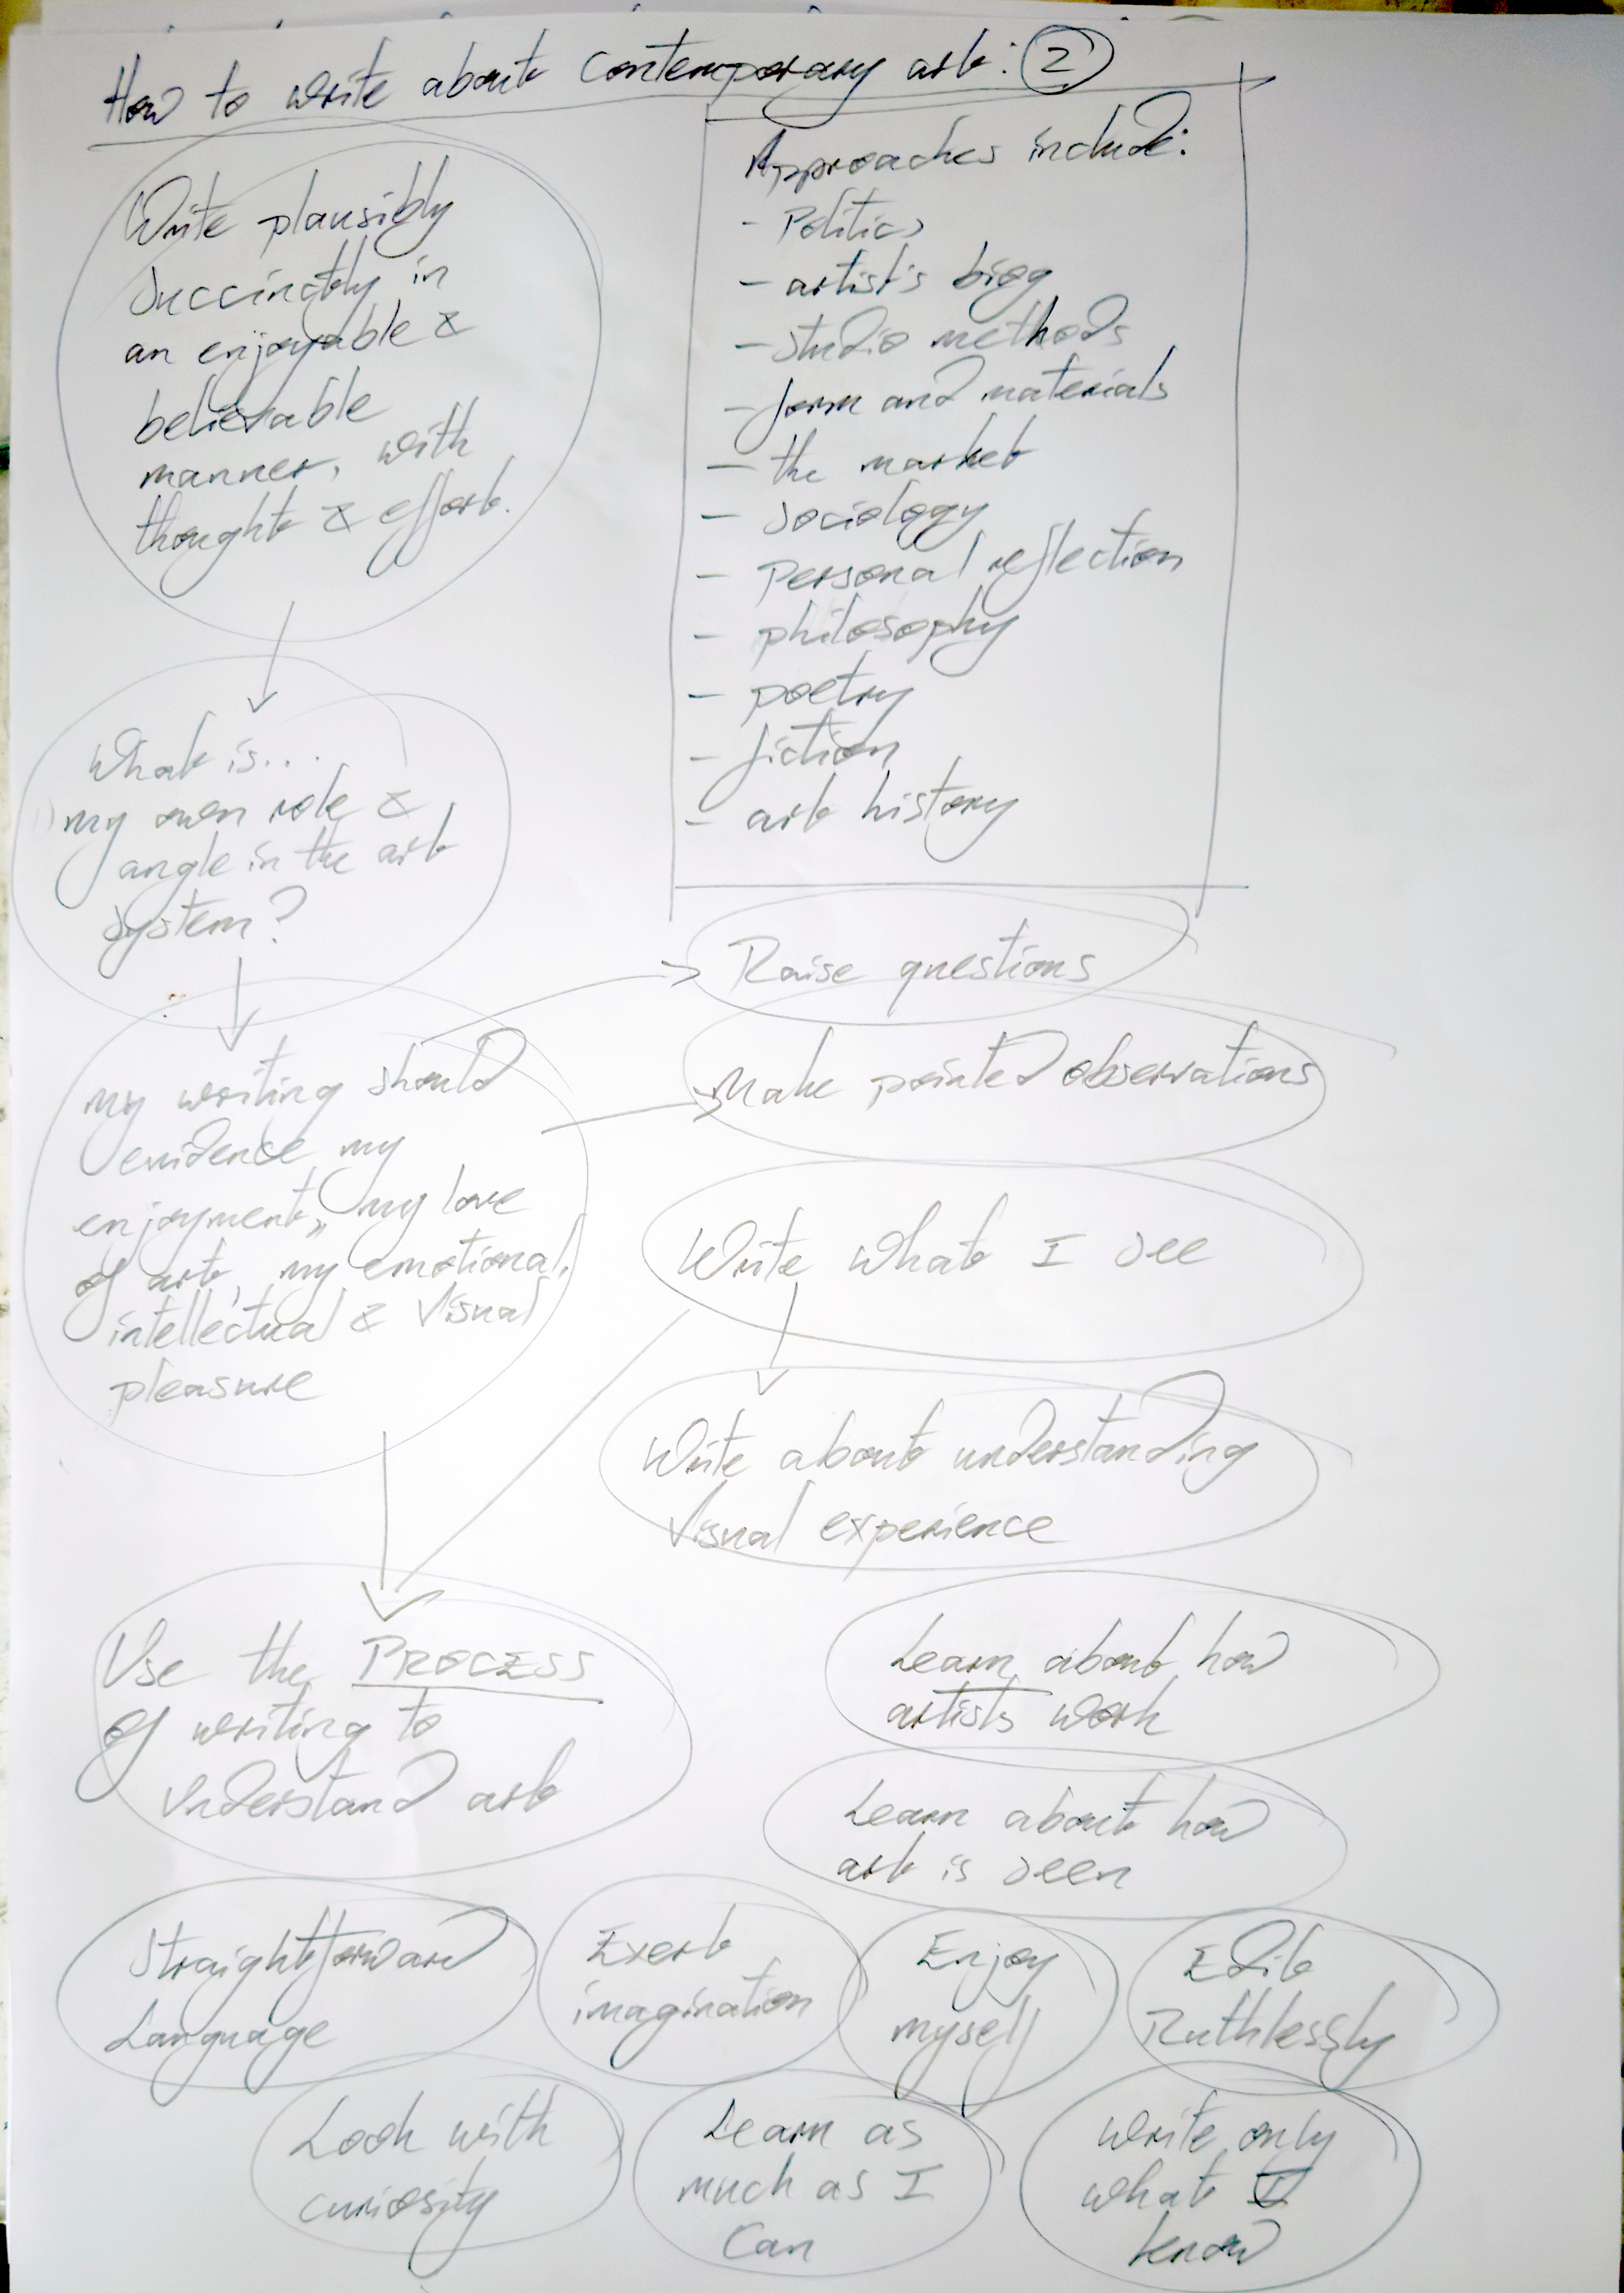 How to write about contemporary art: 2
Write plausibly
succinctly in
an enjoyable &
believable
manner, with
thought & effort.
Approaches include:
- Politics
- artist's biog
- studio methods
- form and materials
- the market
- sociology
- Personal reflection
- philosophy
- poetry
- fiction
- art history
What is...
my own role &
angle in the art
system?
Raise questions
Make pointed observations
my writing should
evidence my
enjoyment, my love
of art, my emotional,
intellectual & visual
pleasure
Write what I see
Write about understanding
visual experience
Use the PROCESS
of writing to
understand art
Learn about how
artists work
Learn about how
art is seen
Straightforward
Language
Exert
imagination
Enjoy
myself
Edit
Ruthlessly
Look with
curiosity
Learn as
much as I
can
Write only
what I
know